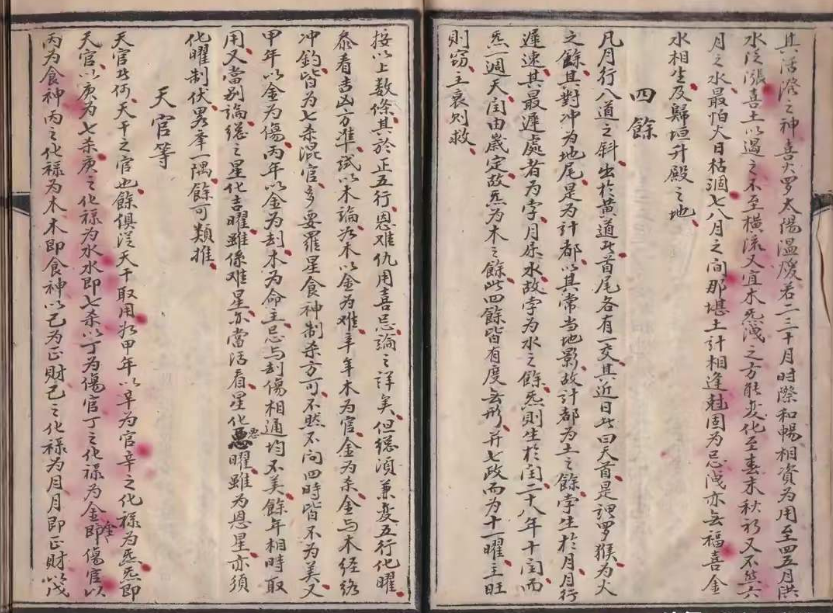 其活澄之神喜火罗太陽溫煖若二三十月時際和暢相資为用至四五月洪
水泛漲喜土以遏之不至横流又宜木炁洩之方能变化至春末秋初又不然六
月之水最怕火日枯涸七八月之间那堪土計相逢尅固为忌洩亦無福喜金
水相生及歸垣升殿之地
四餘
凡月行八道之斜出於黄道此首尾各有一交其近日此曰天首是謂罗猴为火
之餘其對冲为地尾是为計都以其常当地影故計都为土之餘孛生於月月行
遲速其最遲處者为孛月属水故孛为水之餘炁則生於闰二十八年十闰而
炁一週天闰由嵗定故炁为木之餘此四餘皆有度無形升七政而为十一曜主旺
則窃主衰則救
按以上数條其於正五行恩难仇用喜忌論之詳矣但總須兼变五行化曜
叅看吉凶方準試以木論为木以金为难辛年木为官金为杀金与木经络
冲釣皆为七杀混官多要羅星食神制杀方可不然不问四時皆不为美又
甲年以金为傷丙年以金为刦木为命主忌与刦傷相通均不美餘年相時取
用又當别論總之星化吉曜雖係难星亦當活看星化惡曜雖为恩星亦須
化曜制伏畧牽一隅餘可類推
天官等
天官此何天干之官也餘俱從天干取用如甲年以辛为官辛之化禄为炁炁即
天官以庚为七杀庚之化禄为水水即七杀以丁为傷官丁之化禄为金金即傷官以
丙为食神丙之化禄为木木即食神以己为正財己之化禄为月月即正財以戊